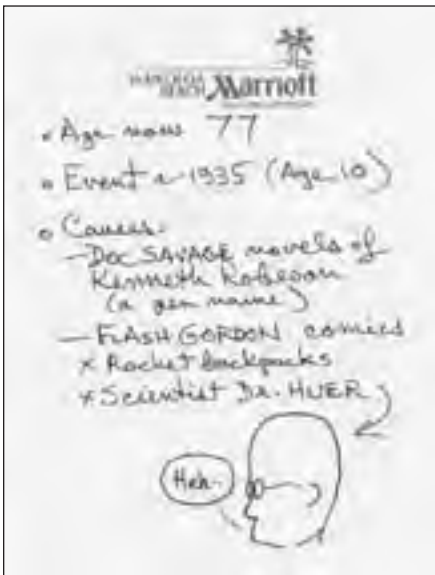 BEACH Marriott
• Age now 77
• Event ~ 1935 (Age 10)
• Causes.
— DOC SAVAGE novels of
Kenneth Robeson
(a pen name)
— FLASH GORDON comics
x Rocket backpacks
x Scientist DR. HUER
Heh.